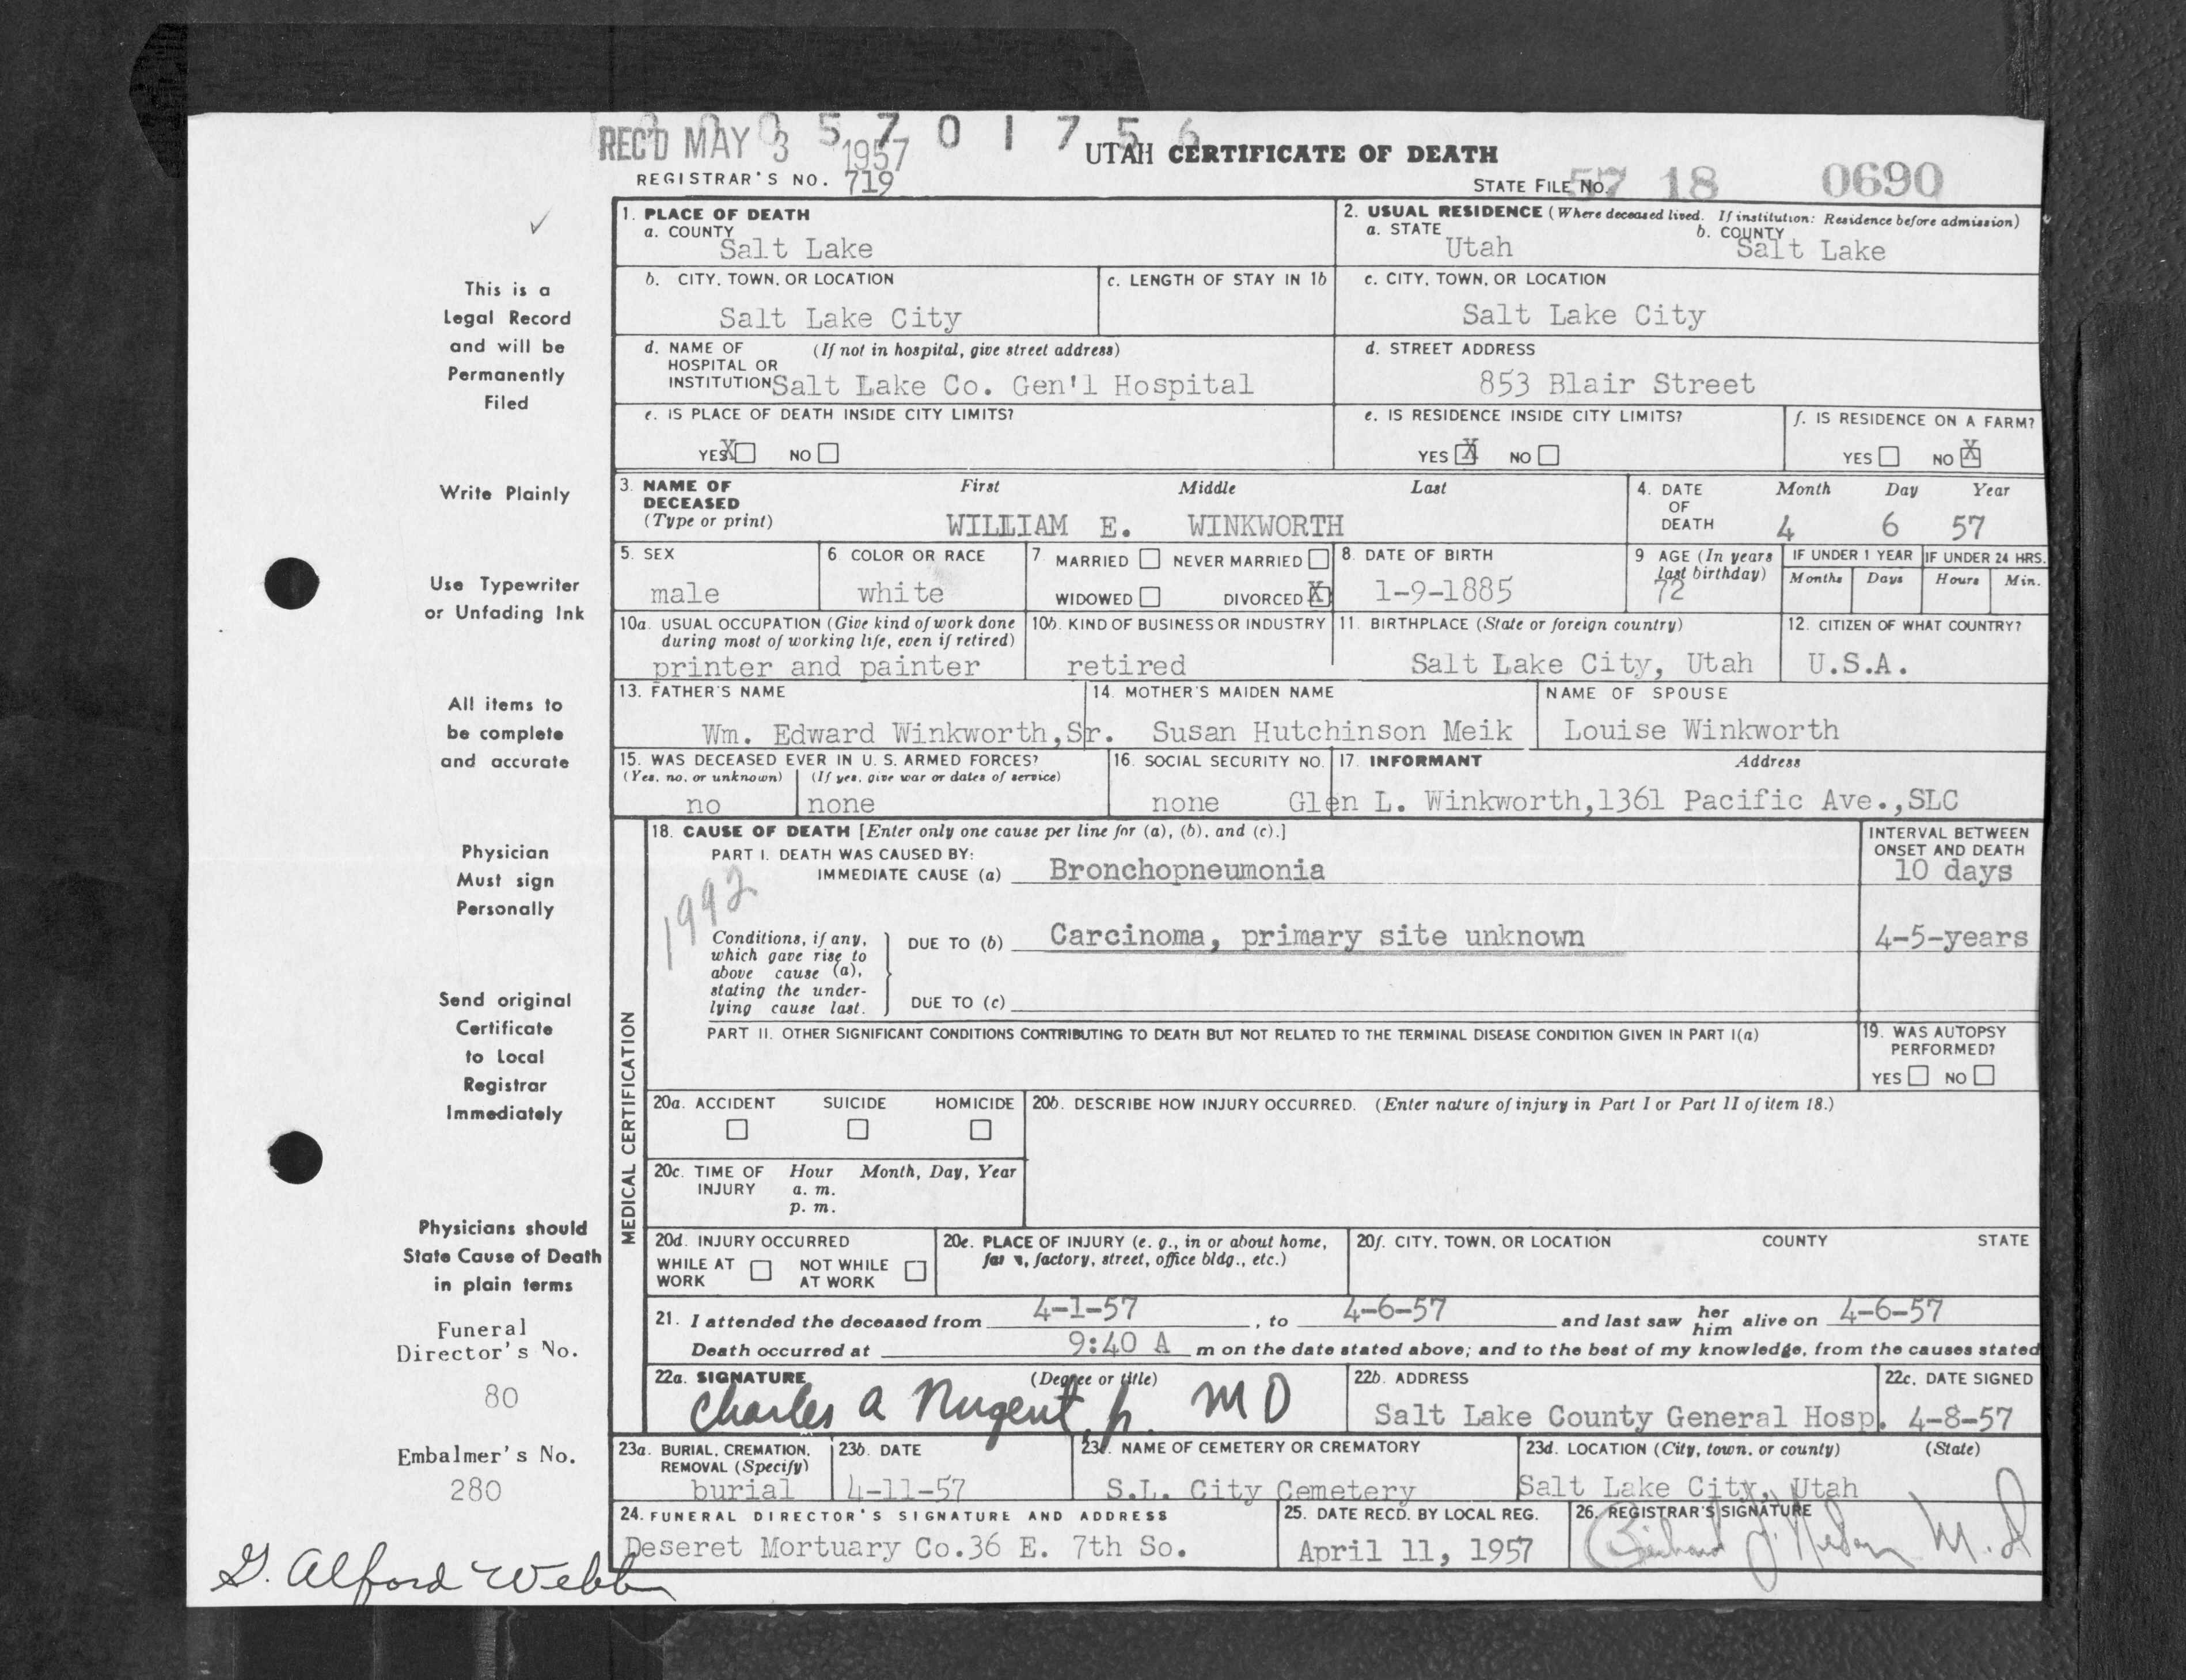 0 0 0 5 7 0 1 7 5 6
REC'D MAY 3 1957
UTAH CERTIFICATE OF DEATH
REGISTRAR'S NO. 719
STATE FILE NO. 57 18 0690
1. PLACE OF DEATH
a. COUNTY
Salt Lake
2. USUAL RESIDENCE (Where deceased lived. If institution: Residence before admission)
a. STATE
Utah
b. COUNTY
Salt Lake
b. CITY, TOWN, OR LOCATION
Salt Lake City
c. LENGTH OF STAY IN 1b
c. CITY, TOWN, OR LOCATION
Salt Lake City
d. NAME OF (If not in hospital, give street address)
HOSPITAL OR
INSTITUTION Salt Lake Co. Gen'l Hospital
d. STREET ADDRESS
853 Blair Street
e. IS PLACE OF DEATH INSIDE CITY LIMITS?
YES X NO
e. IS RESIDENCE INSIDE CITY LIMITS?
YES X NO
f. IS RESIDENCE ON A FARM?
YES NO X
3. NAME OF
DECEASED
(Type or print)
First Middle Last
WILLIAM E. WINKWORTH
4. DATE
OF
DEATH
Month Day Year
4 6 57
5. SEX
male
6. COLOR OR RACE
white
7. MARRIED NEVER MARRIED
WIDOWED DIVORCED X
8. DATE OF BIRTH
1-9-1885
9 AGE (In years
last birthday)
72
IF UNDER 1 YEAR
Months Days
IF UNDER 24 HRS.
Hours Min.
10a. USUAL OCCUPATION (Give kind of work done
during most of working life, even if retired)
printer and painter
10b. KIND OF BUSINESS OR INDUSTRY
retired
11. BIRTHPLACE (State or foreign country)
Salt Lake City, Utah
12. CITIZEN OF WHAT COUNTRY?
U.S.A.
13. FATHER'S NAME
Wm. Edward Winkworth,Sr.
14. MOTHER'S MAIDEN NAME
Susan Hutchinson Meik
NAME OF SPOUSE
Louise Winkworth
15. WAS DECEASED EVER IN U. S. ARMED FORCES?
(Yes, no, or unknown) (If yes, give war or dates of service)
no none
16. SOCIAL SECURITY NO.
none
17. INFORMANT Address
Glen L. Winkworth,1361 Pacific Ave.,SLC
MEDICAL CERTIFICATION
18. CAUSE OF DEATH [Enter only one cause per line for (a), (b), and (c).]
INTERVAL BETWEEN
ONSET AND DEATH
PART I. DEATH WAS CAUSED BY:
IMMEDIATE CAUSE (a) Bronchopneumonia 10 days
1992
Conditions, if any,
which gave rise to
above cause (a),
stating the under-
lying cause last.
DUE TO (b) Carcinoma, primary site unknown 4-5-years
DUE TO (c)
PART II. OTHER SIGNIFICANT CONDITIONS CONTRIBUTING TO DEATH BUT NOT RELATED TO THE TERMINAL DISEASE CONDITION GIVEN IN PART I(a)
19. WAS AUTOPSY
PERFORMED?
YES NO
20a. ACCIDENT SUICIDE HOMICIDE
20b. DESCRIBE HOW INJURY OCCURRED. (Enter nature of injury in Part I or Part II of item 18.)
20c. TIME OF Hour Month, Day, Year
INJURY a. m.
p. m.
20d. INJURY OCCURRED
WHILE AT NOT WHILE
WORK AT WORK
20e. PLACE OF INJURY (e. g., in or about home,
farm, factory, street, office bldg., etc.)
20f. CITY, TOWN, OR LOCATION COUNTY STATE
21. I attended the deceased from 4-1-57, to 4-6-57 and last saw her him alive on 4-6-57
Death occurred at 9:40 A m on the date stated above; and to the best of my knowledge, from the causes stated
22a. SIGNATURE (Degree or title)
Charles A Nugent Jr. MD
22b. ADDRESS
Salt Lake County General Hosp.
22c. DATE SIGNED
4-8-57
23a. BURIAL, CREMATION,
REMOVAL (Specify)
burial
23b. DATE
4-11-57
23c. NAME OF CEMETERY OR CREMATORY
S.L. City Cemetery
23d. LOCATION (City, town, or county) (State)
Salt Lake City, Utah
24. FUNERAL DIRECTOR'S SIGNATURE AND ADDRESS
Deseret Mortuary Co.36 E. 7th So.
25. DATE RECD. BY LOCAL REG.
April 11, 1957
26. REGISTRAR'S SIGNATURE
This is a
Legal Record
and will be
Permanently
Filed
Write Plainly
Use Typewriter
or Unfading Ink
All items to
be complete
and accurate
Physician
Must sign
Personally
Send original
Certificate
to Local
Registrar
Immediately
Physicians should
State Cause of Death
in plain terms
Funeral
Director's No.
80
Embalmer's No.
280
G. Alford Webb